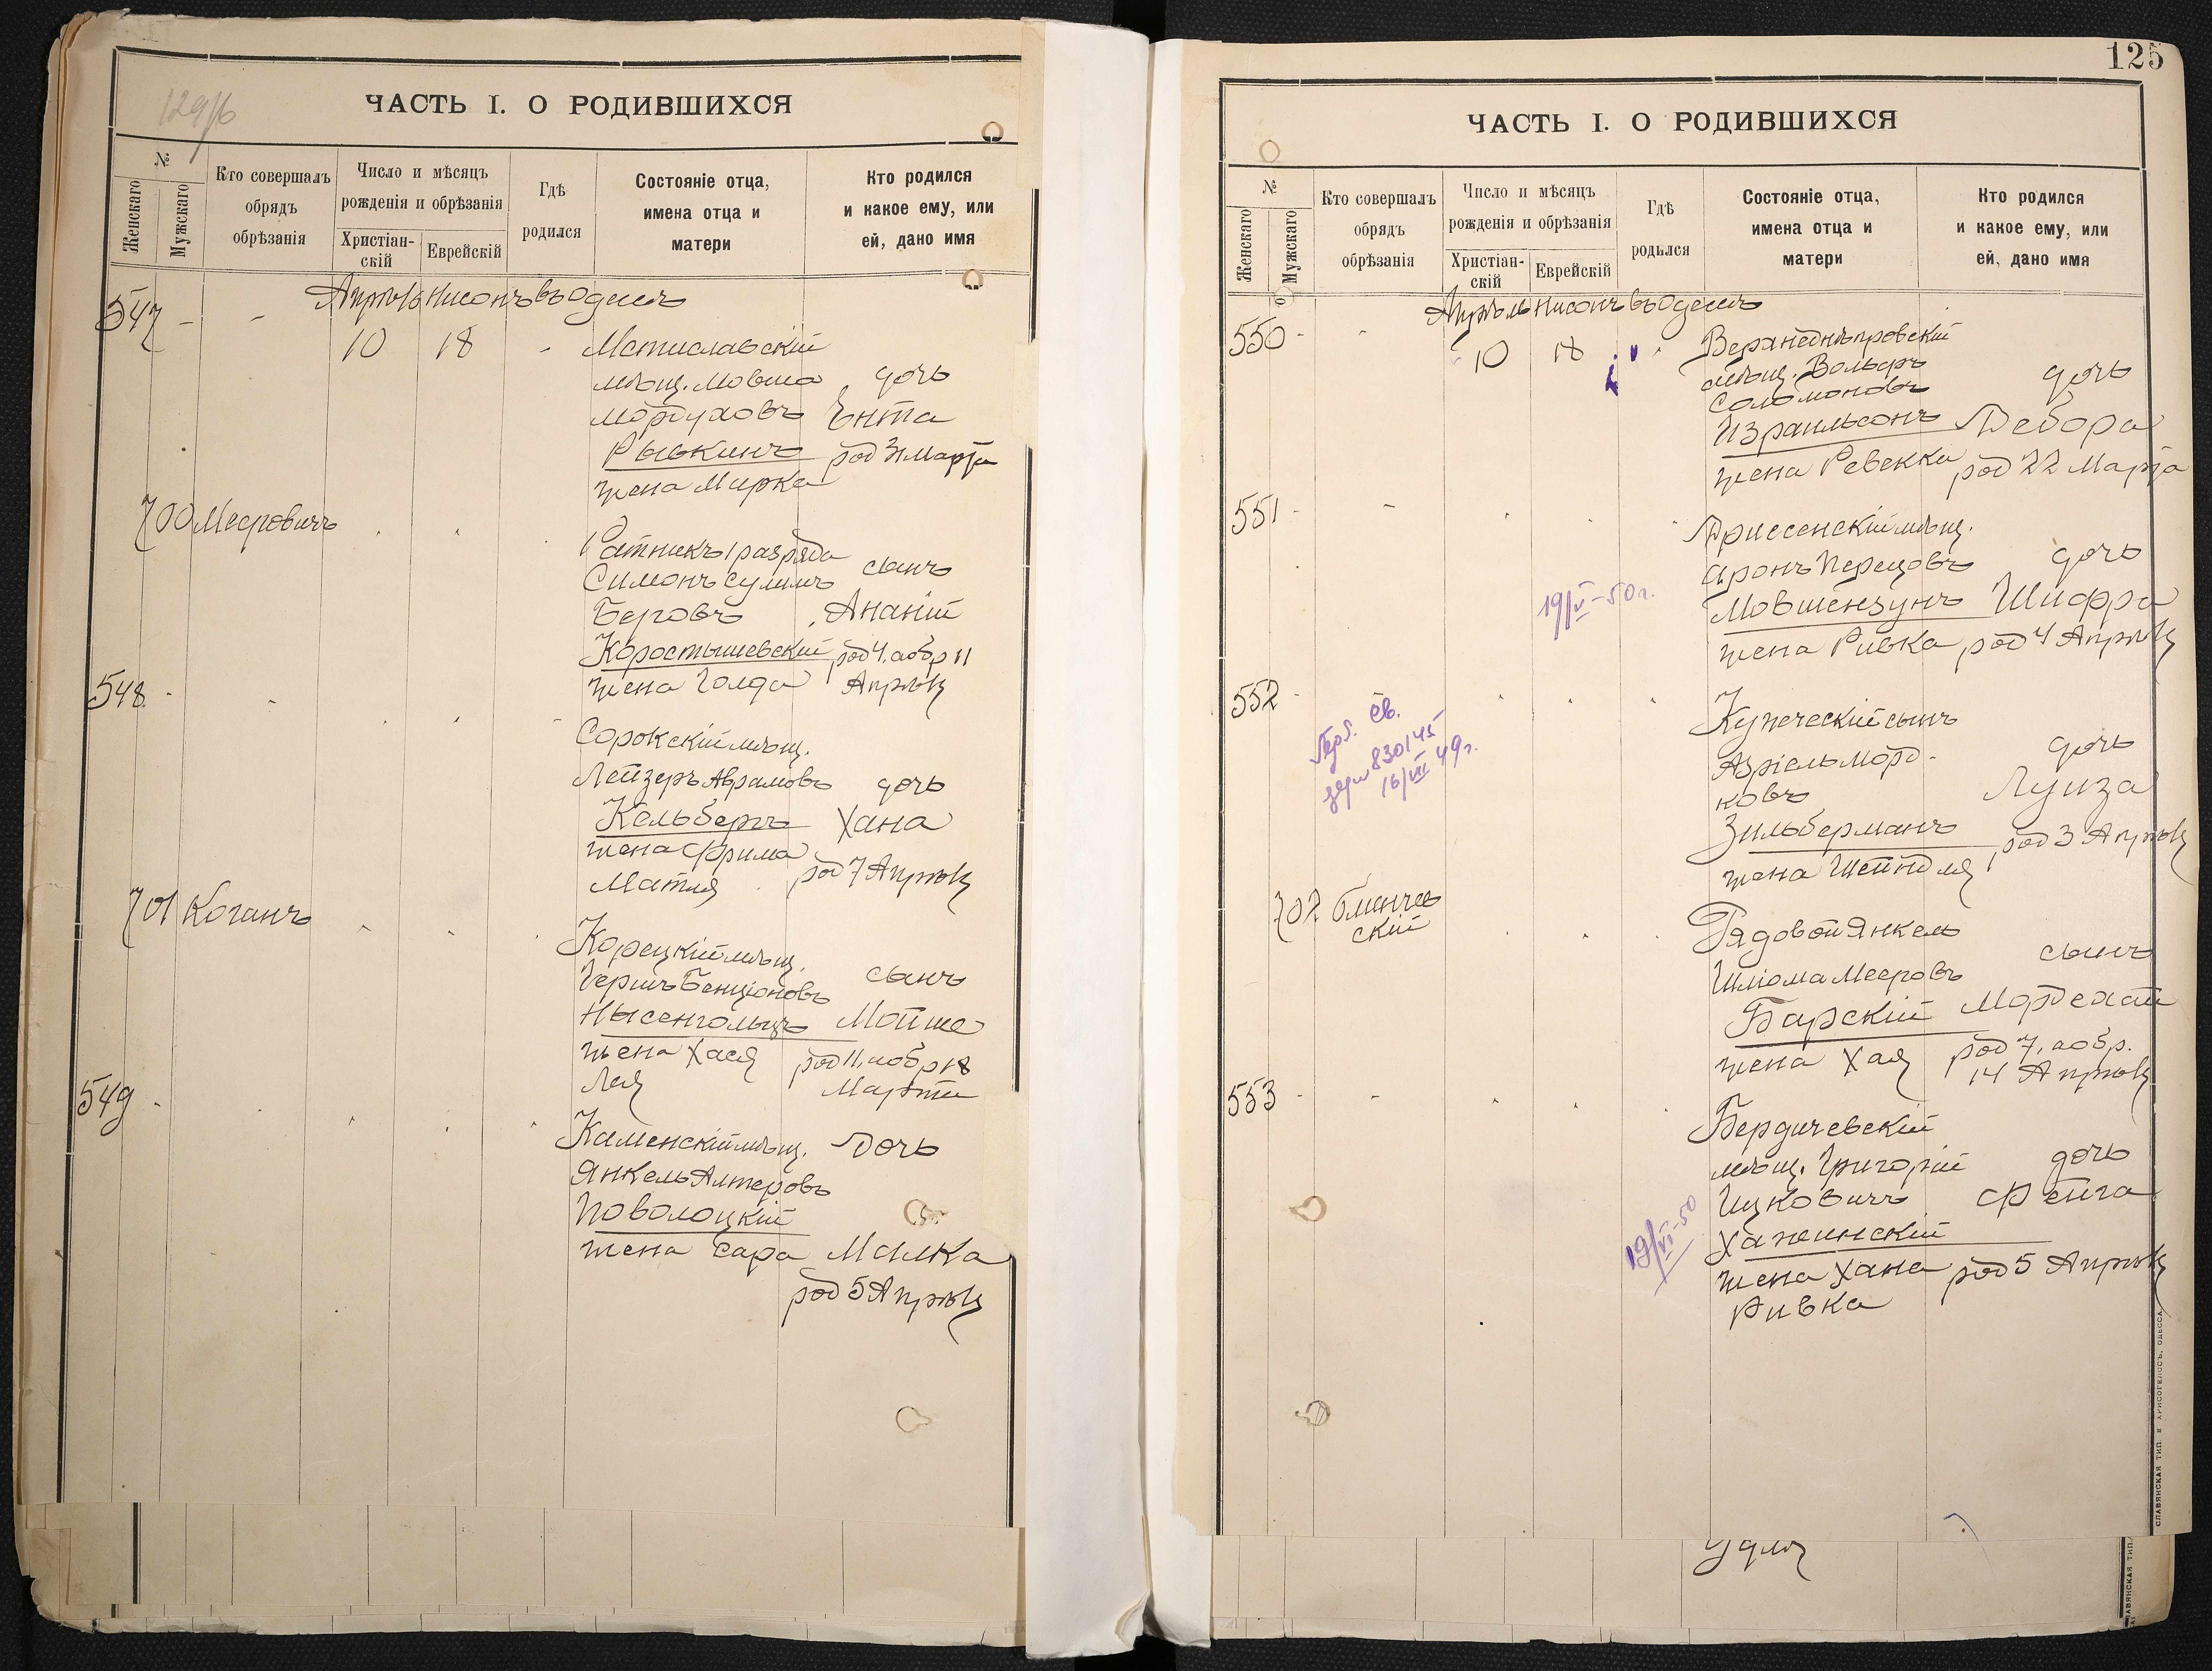 129/6
ЧАСТЬ I. О РОДИВШИХСЯ
№
Женскаго
Мужскаго
Кто совершалъ
обрядъ
обрѣзанія
Число и мѣсяцъ
рожденія и обрѣзанія
Христіан-
скій
Еврейскій
Гдѣ
родился
Состояніе отца,
имена отца и
матери
Кто родился
и какое ему, или
ей, дано имя
Апрѣль Нисонъ въ Одессѣ
547 - - 10 18 - Мстиславскій
мѣщ. Мовша дочь
Мордуховъ Ента
Рывкинъ род 31 Марта
жена Мирка
700 Мееровичъ
Ратникъ 1 разряда
Симонъ Сулимъ сынъ
Беровъ Ананій
Коростышевскій род 4, а обр 11
жена Голда Апрѣля
548 -
Сорокскій мѣщ.
Лейзеръ Аврамовъ дочь
Кельбертъ Хана
жена Фрима
Матля род 7 Апрѣля
701 Коганъ
Корецкій мѣщ.
Гершъ Бенціоновъ сынъ
Нысенгольцъ Мойше
жена Хася род 11, а обр 18
Лея Марта
549 -
Каменскій мѣщ. дочь
Янкель Алтеровъ
Поволоцкій
жена Сара Малка
род 5 Апрѣля
125
ЧАСТЬ I. О РОДИВШИХСЯ
№
Женскаго
Мужскаго
Кто совершалъ
обрядъ
обрѣзанія
Число и мѣсяцъ
рожденія и обрѣзанія
Христіан-
скій
Еврейскій
Гдѣ
родился
Состояніе отца,
имена отца и
матери
Кто родился
и какое ему, или
ей, дано имя
Апрѣль Нисонъ въ Одессѣ
550 - - 10 18 Верхнеднѣпровскій
мѣщ. Вольфъ дочь
Соломоновъ
Израильсонъ Дебора
жена Ревекка род 22 Марта
551 - -
Дриссенскій мѣщ.
Аронъ Перецовъ дочь
19/V-50г. Мовшензунъ Шифра
жена Ривка род 4 Апрѣля
552 -
Купеческій сынъ
Азріель Морд- дочь
ковъ Луиза
Зильберманъ род 3 Апрѣля
жена Шейндля
св.
830145
16/VII 49г.
702
скій
Рядовой Янкель
Шліома Мееровъ сынъ
Барскій Мордехай
жена Хая род 7, а обр.
14 Апрѣля
553 - -
Бердичевскій
мѣщ. Григорій дочь
Ицковичъ Фейга
19/VI-50
Хажинскій
жена Хана род 5 Апрѣля
Ривка
Удля
СЛАВЯНСКАЯ ТИП. Е. ХРИСОГЕЛОСЪ, ОДЕССА.